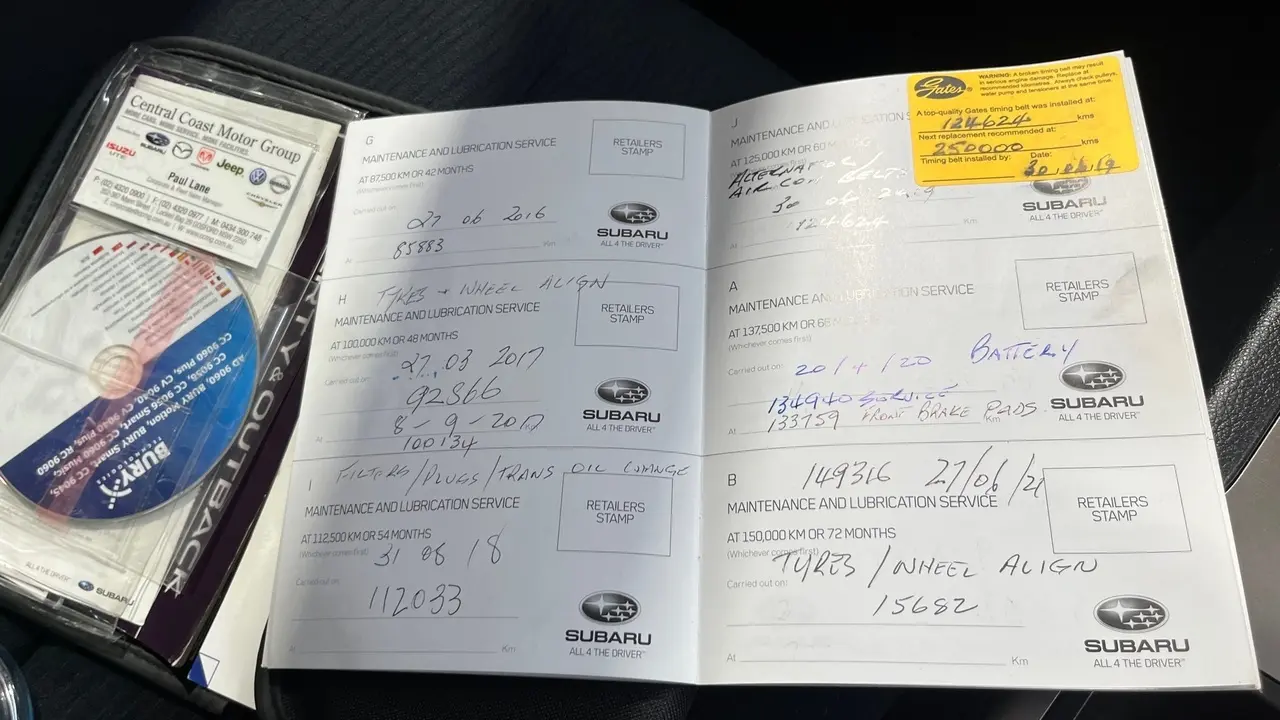 Central Coast Motor Group
MORE CARS. MORE SERVICE. MORE FACILITIES.
SUBARU
ISUZU
UTE
Jeep
CHRYSLER
Paul Lane
P: (02) 4320 0900 | F: (02) 4320 0977 | M: 0434 900 748
BURY
TECHNOLOGIES
ALL 4 THE DRIVER
SUBARU
& OUTBACK
G
MAINTENANCE AND LUBRICATION SERVICE
AT 87,500 KM OR 42 MONTHS
(Whichever comes first)
Carried out on:
27 06 2016
At 85883 Km
RETAILERS
STAMP
SUBARU
ALL 4 THE DRIVER
H TYRES + WHEEL ALIGN
MAINTENANCE AND LUBRICATION SERVICE
AT 100,000 KM OR 48 MONTHS
(Whichever comes first)
Carried out on:
27.03 2017
92866
8-9-2017
At 100134
RETAILERS
STAMP
SUBARU
ALL 4 THE DRIVER
I FILTERS/PLUGS/TRANS OIL CHANGE
MAINTENANCE AND LUBRICATION SERVICE
AT 112,500 KM OR 54 MONTHS
(Whichever comes first)
31 08 18
Carried out on:
112033
At Km
RETAILERS
STAMP
SUBARU
ALL 4 THE DRIVER
J
MAINTENANCE AND LUBRICATION S
AT 125,000 KM OR 60
ALTERNATOR/
AIR CON BELTS
124624
At
Gates
WARNING: A broken timing belt may result
in serious engine damage. Replace at
recommended kilometres. Always check pulleys,
water pump and tensioners at the same time.
A top-quality Gates timing belt was installed at:
124624 kms
Next replacement recommended at:
250000 kms
Timing belt installed by: Date:
30.06.19
SUBARU
ALL 4 THE DRIVER
A
MAINTENANCE AND LUBRICATION SERVICE
AT 137,500 KM OR 66
(Whichever comes first)
Carried out on: 20/4/20 BATTERY
134940 SERVICE
At 133759 FRONT BRAKE PADS.
Km
RETAILERS
STAMP
SUBARU
ALL 4 THE DRIVER
B 149316 27/06/21
MAINTENANCE AND LUBRICATION SERVICE
AT 150,000 KM OR 72 MONTHS
(Whichever comes first)
TYRES/WHEEL ALIGN
Carried out on:
15682
At Km
RETAILERS
STAMP
SUBARU
ALL 4 THE DRIVER